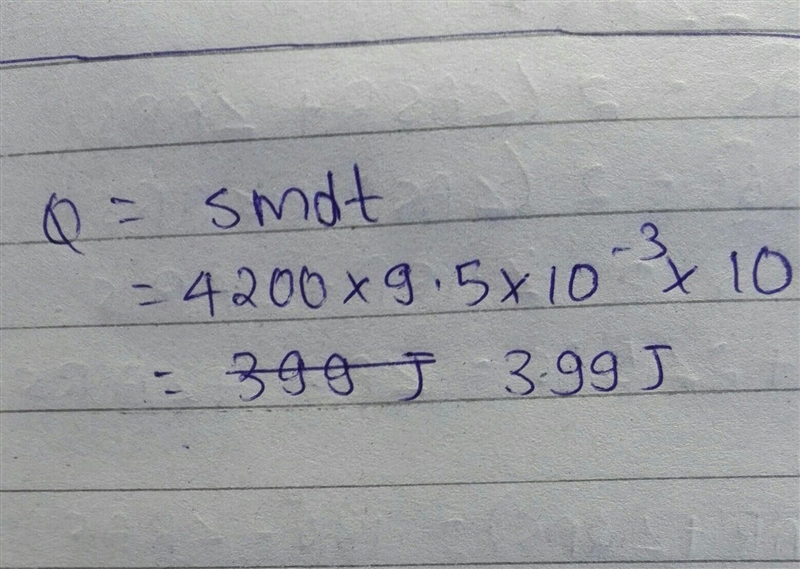 Q = smdt
= 4200 × 9.5 × 10⁻³ × 10
= 399 J 3.99 J